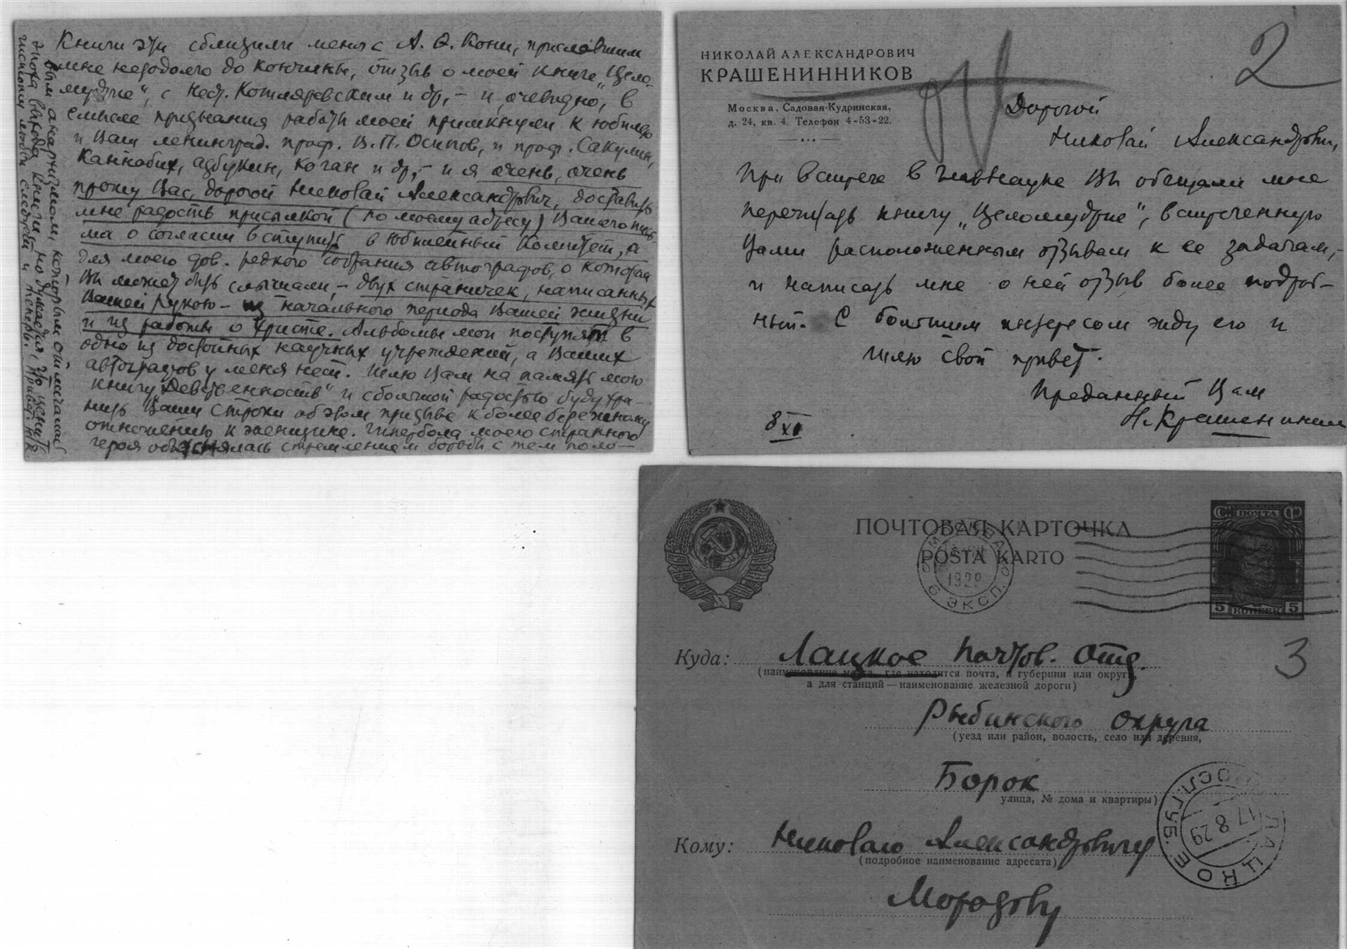 Книги эти сблизили меня с А. Ф. Кони, приславшим
мне незадолго до кончины, отзыв о моей книге „Цело-
мудрие“, с Нест. Котляревским и др., – и, очевидно, в
смысле признания работы моей примкнули к юбилею
и Ваш ленинград. проф. В. П. Осипов, и проф. Сакулин,
Каннабих, Азбукин, Коган и др., – и я очень, очень
прошу Вас, дорогой Николай Александрович, доставить
мне радость присылкой (по моему адресу) Вашего пись-
ма о согласии вступить в Юбилейный Комитет, а
для моего дов. редкого собрания автографов, о котором
Вы может быть слышали, – двух страничек, написанных
Вашей рукою – из начального периода Вашей жизни
и из работы о Христе. Альбомы мои поступят в
одно из достойных научных учреждений, а Ваших
автографов у меня нет. Шлю Вам на память мою
книгу „Девственность“ и с большой радостью буду хра-
нить Ваши строки об этом призыве к более бережному
отношению к женщине. Гипербола моего странного
героя объяснялась стремлением борьбы с тем поло-
вым
которым отмечалась
эпоха выхода книги, но думается, что ценить
чистоту любви следует и теперь.
НИКОЛАЙ АЛЕКСАНДРОВИЧ
КРАШЕНИННИКОВ
Москва, Садовая-Кудринская,
д. 24, кв. 4. Телефон 4-53-22.
2
Дорогой
Николай Александрович,
При встрече в Главнауке Вы обещали мне
перечитать книгу „Целомудрие“, встреченную
Вами расположенным отзывом к ее задачам, –
и написать мне о ней отзыв более подроб-
ный. С большим интересом жду его и
шлю свой привет.
Преданный Вам
Н. Крашенинник
8 XI
ПОЧТОВАЯ КАРТОЧКА
POŜTA KARTO
МОСКВА
1929
ЭКСП.
ПОЧТА
5 КОПЕЕК 5
3
Куда: Лацкое почтов. отд.
(наименование места, где находится почта, и губернии или округа,
а для станций — наименование железной дороги)
Рыбинского округа
(уезд или район, волость, село или деревня,
Борок
улица, № дома и квартиры)
Кому: Николаю Александровичу
(подробное наименование адресата)
Морозову
ЛАЦКОЕ
17 8 29